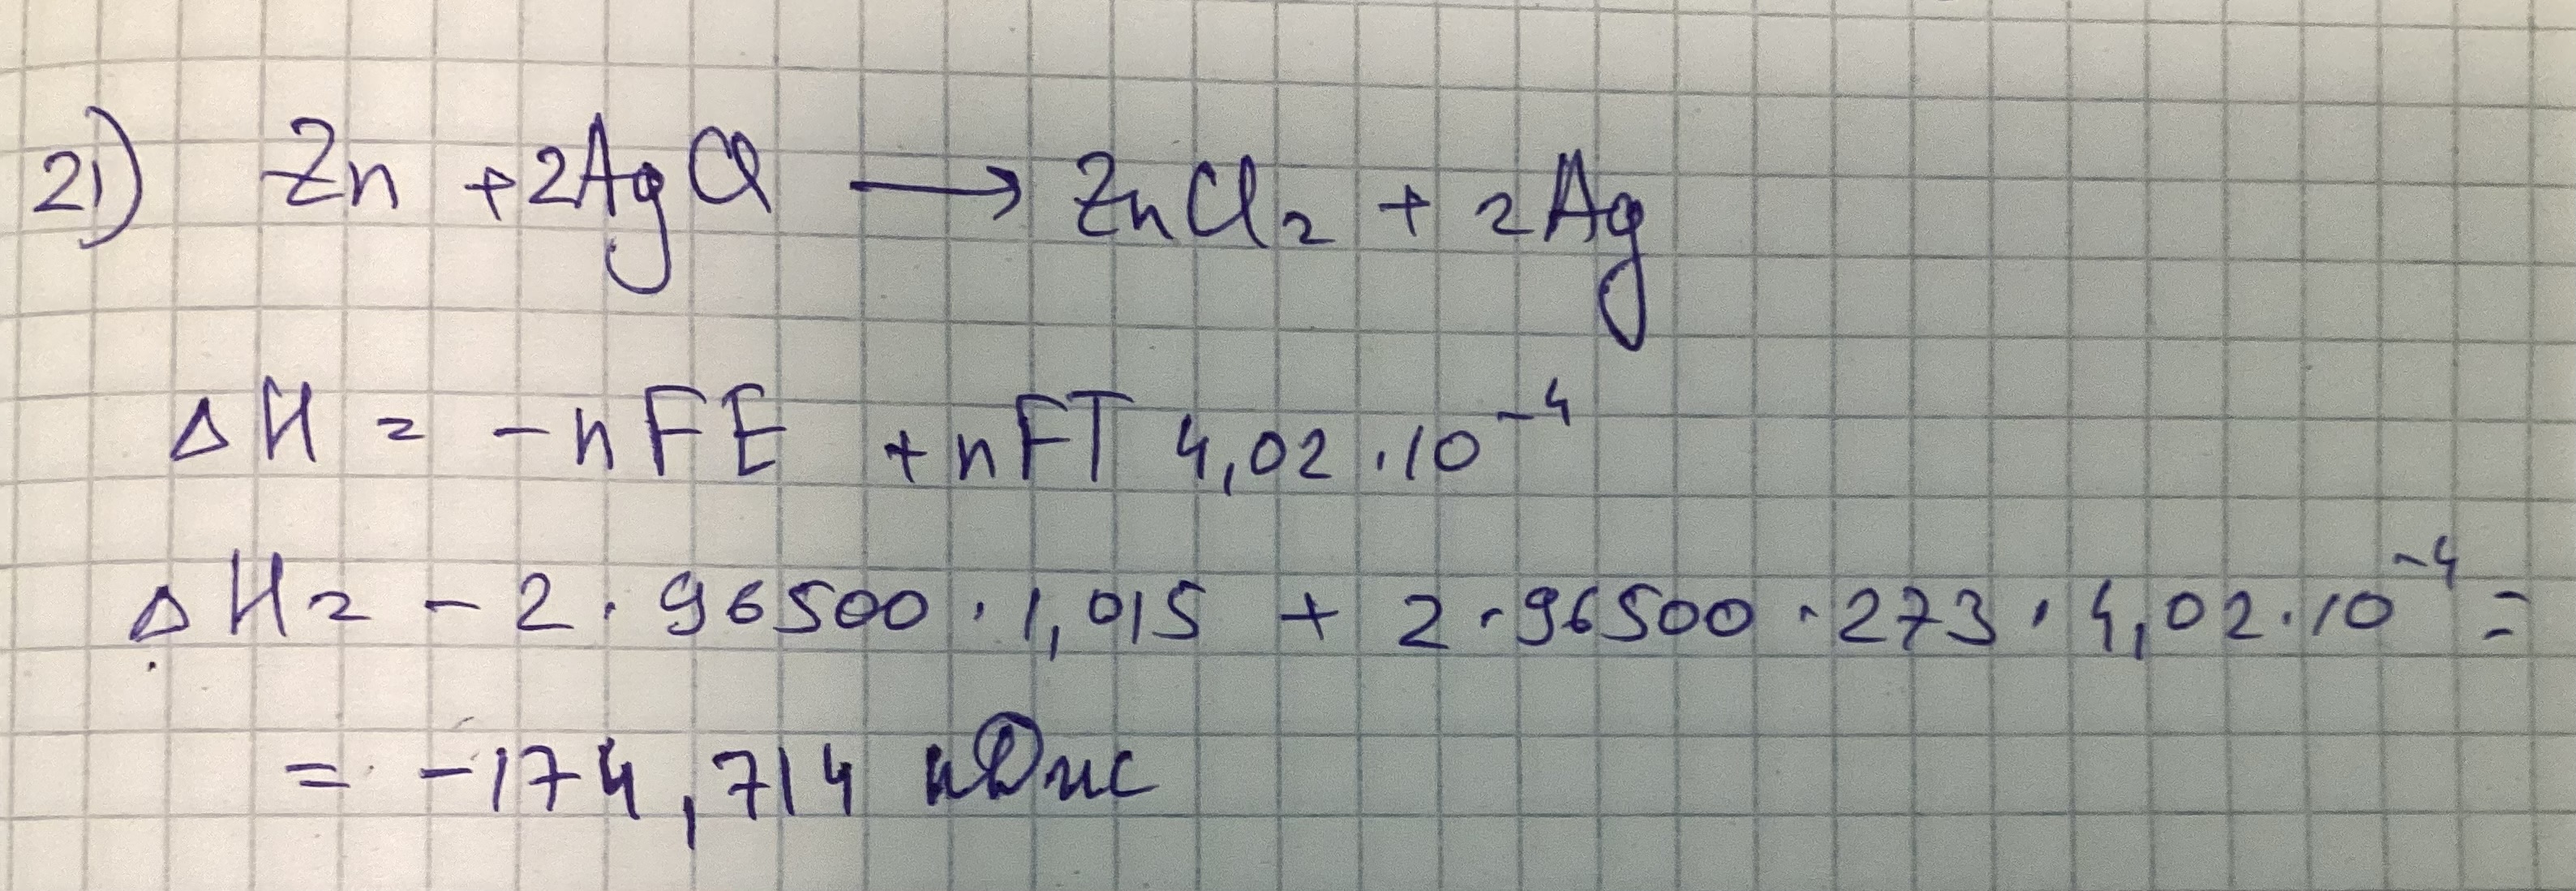 21) Zn + 2AgCl → ZnCl₂ + 2Ag
ΔH = -nFE + nFT 4,02 · 10⁻⁴
ΔH = - 2 · 96500 · 1,015 + 2 · 96500 · 273 · 4,02 · 10⁻⁴ =
= -174,714 кДж